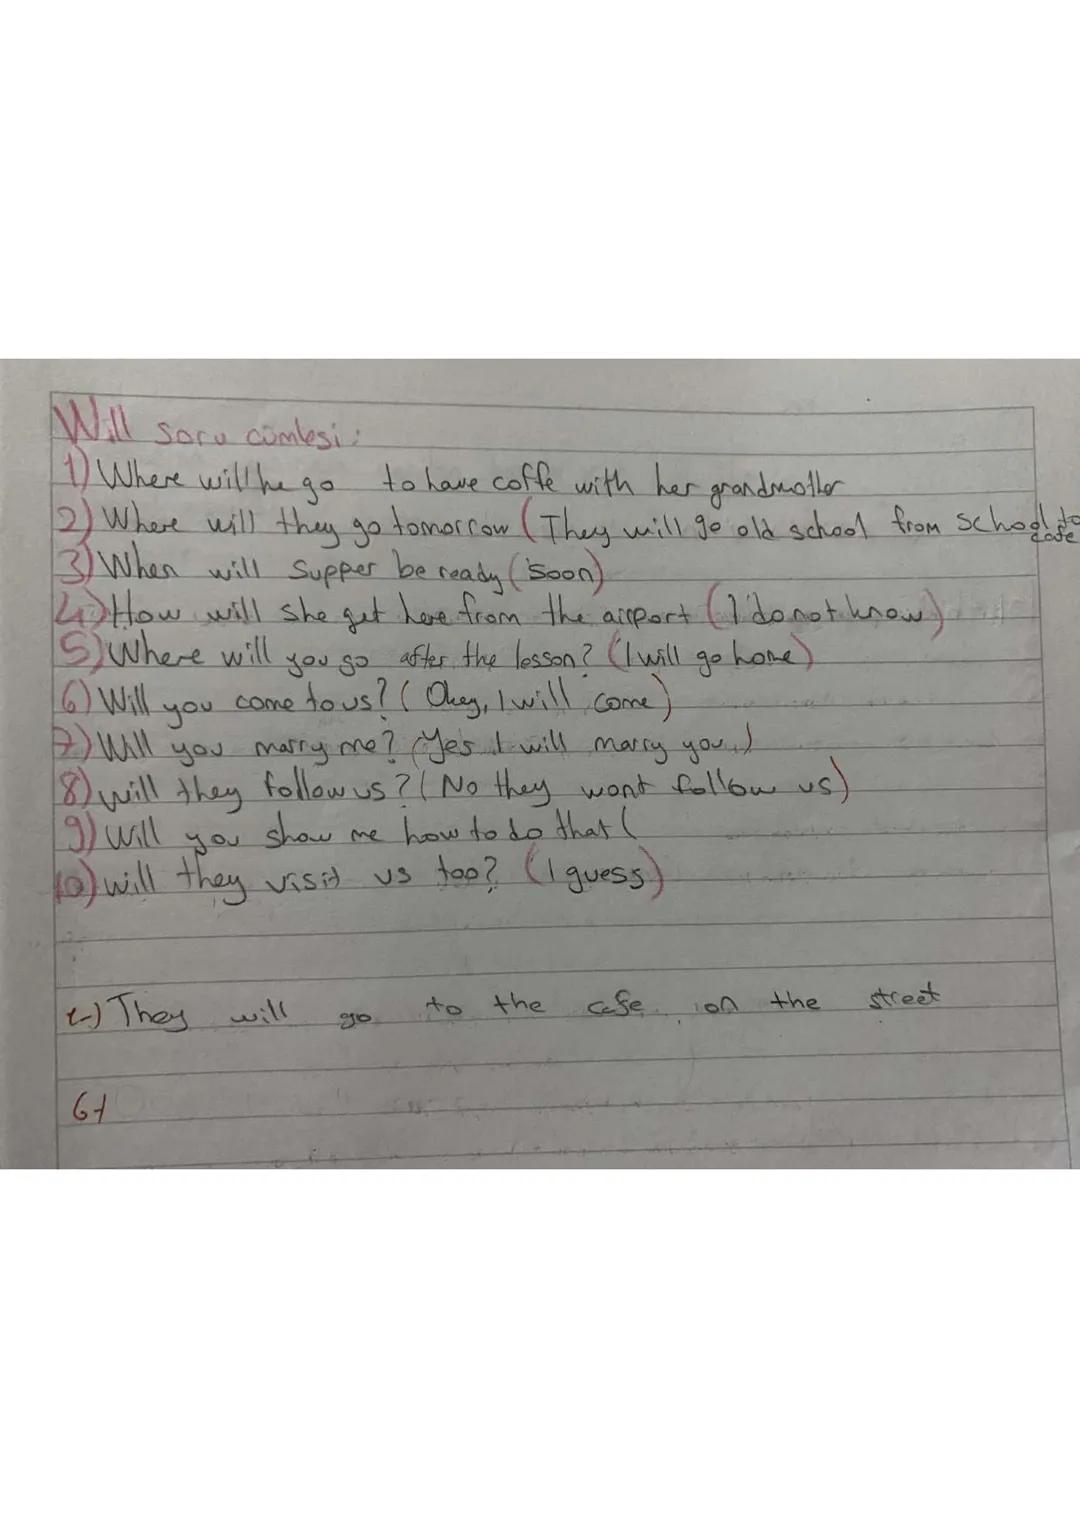 Will soru cümlesi:
1) Where will he go to have coffe with her grandmother
2) Where will they go tomorrow (They will go old school from school to cafe
3) When will supper be ready (soon)
4) How will she get here from the airport (I do not know)
5) Where will you go after the lesson? (I will go home)
6) Will you come to us? ( Okey, I will come)
7) Will you marry me? (Yes I will marry you.)
8) will they follow us? ( No they wont follow us)
9) Will you show me how to do that (
10) will they visit us too? (I guess)
2-) They will go to the cafe on the street
6-)